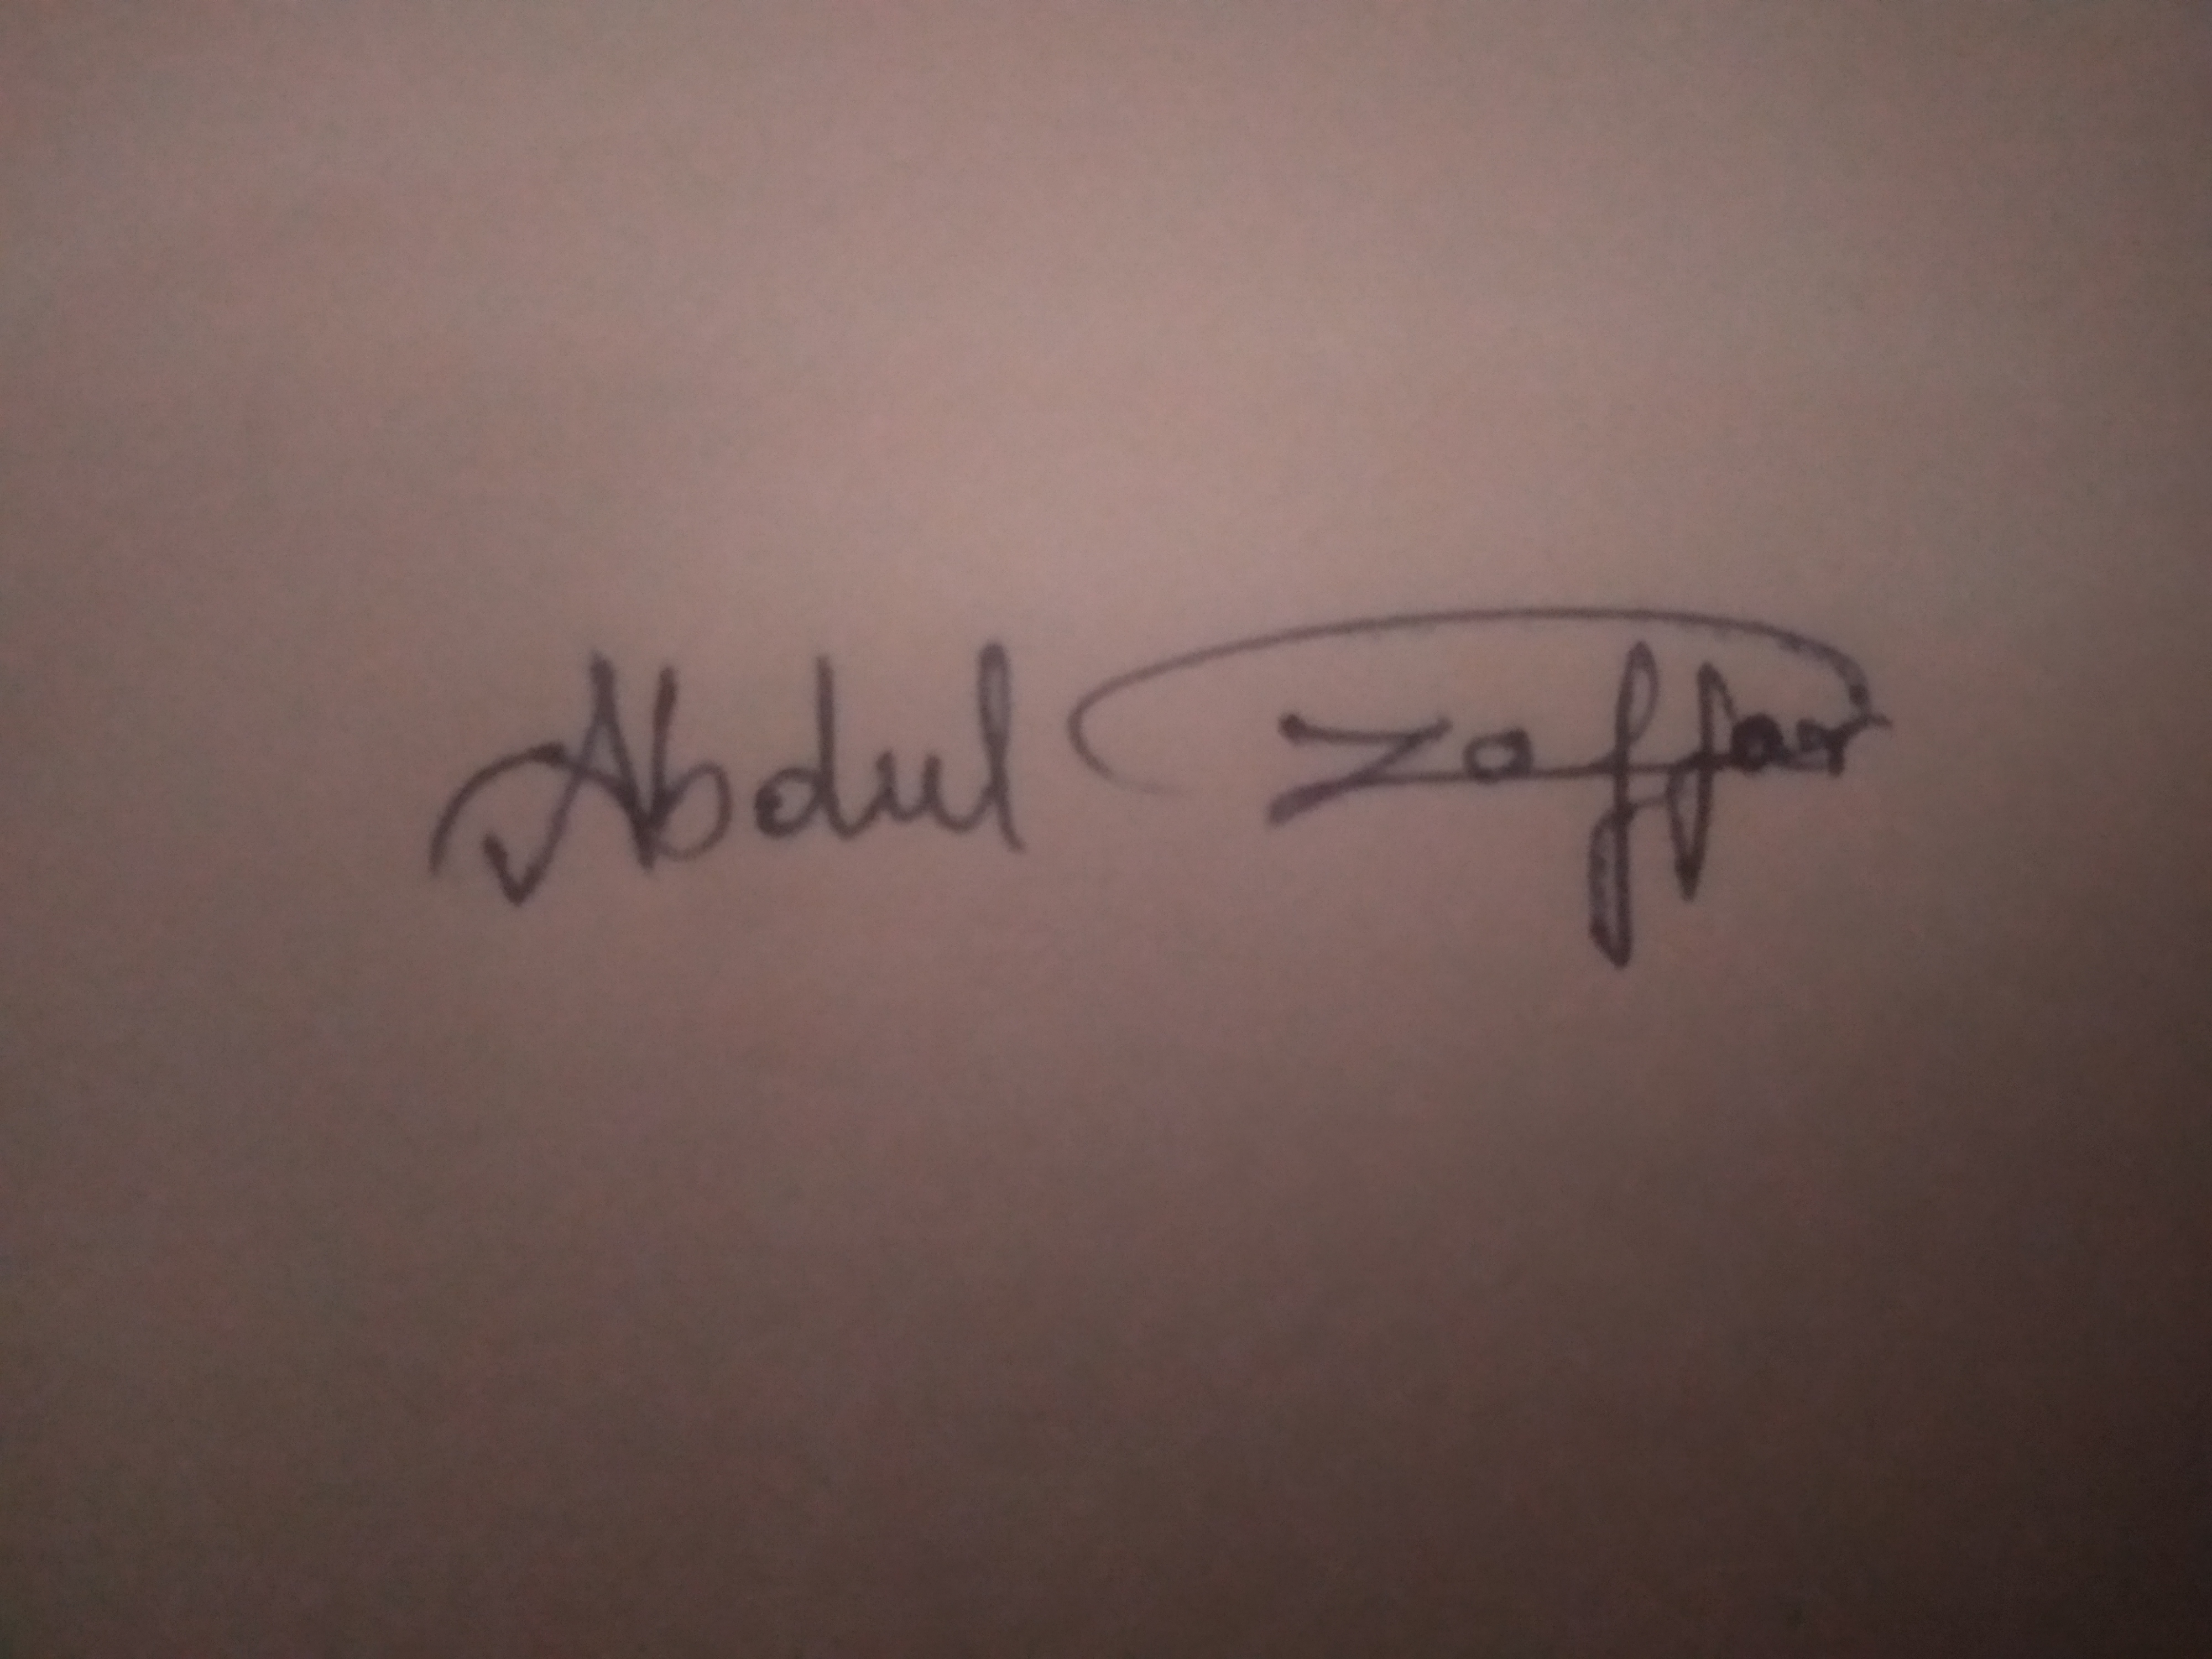 Abdul Zaffar